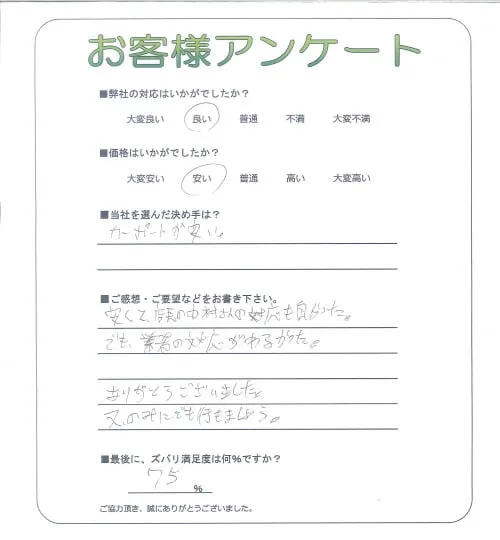 お客様アンケート
■弊社の対応はいかがでしたか？
大変良い 良い 普通 不満 大変不満
■価格はいかがでしたか？
大変安い 安い 普通 高い 大変高い
■当社を選んだ決め手は？
カーポートが安い。
■ご感想・ご要望などをお書き下さい。
安くて、店長の中村さんの対応も良かった。
でも、業者の対応がわるかった。
ありがとうございました。
又、のみにでも行きましょう。
■最後に、ズバリ満足度は何%ですか？
75 %
ご協力頂き、誠にありがとうございました。